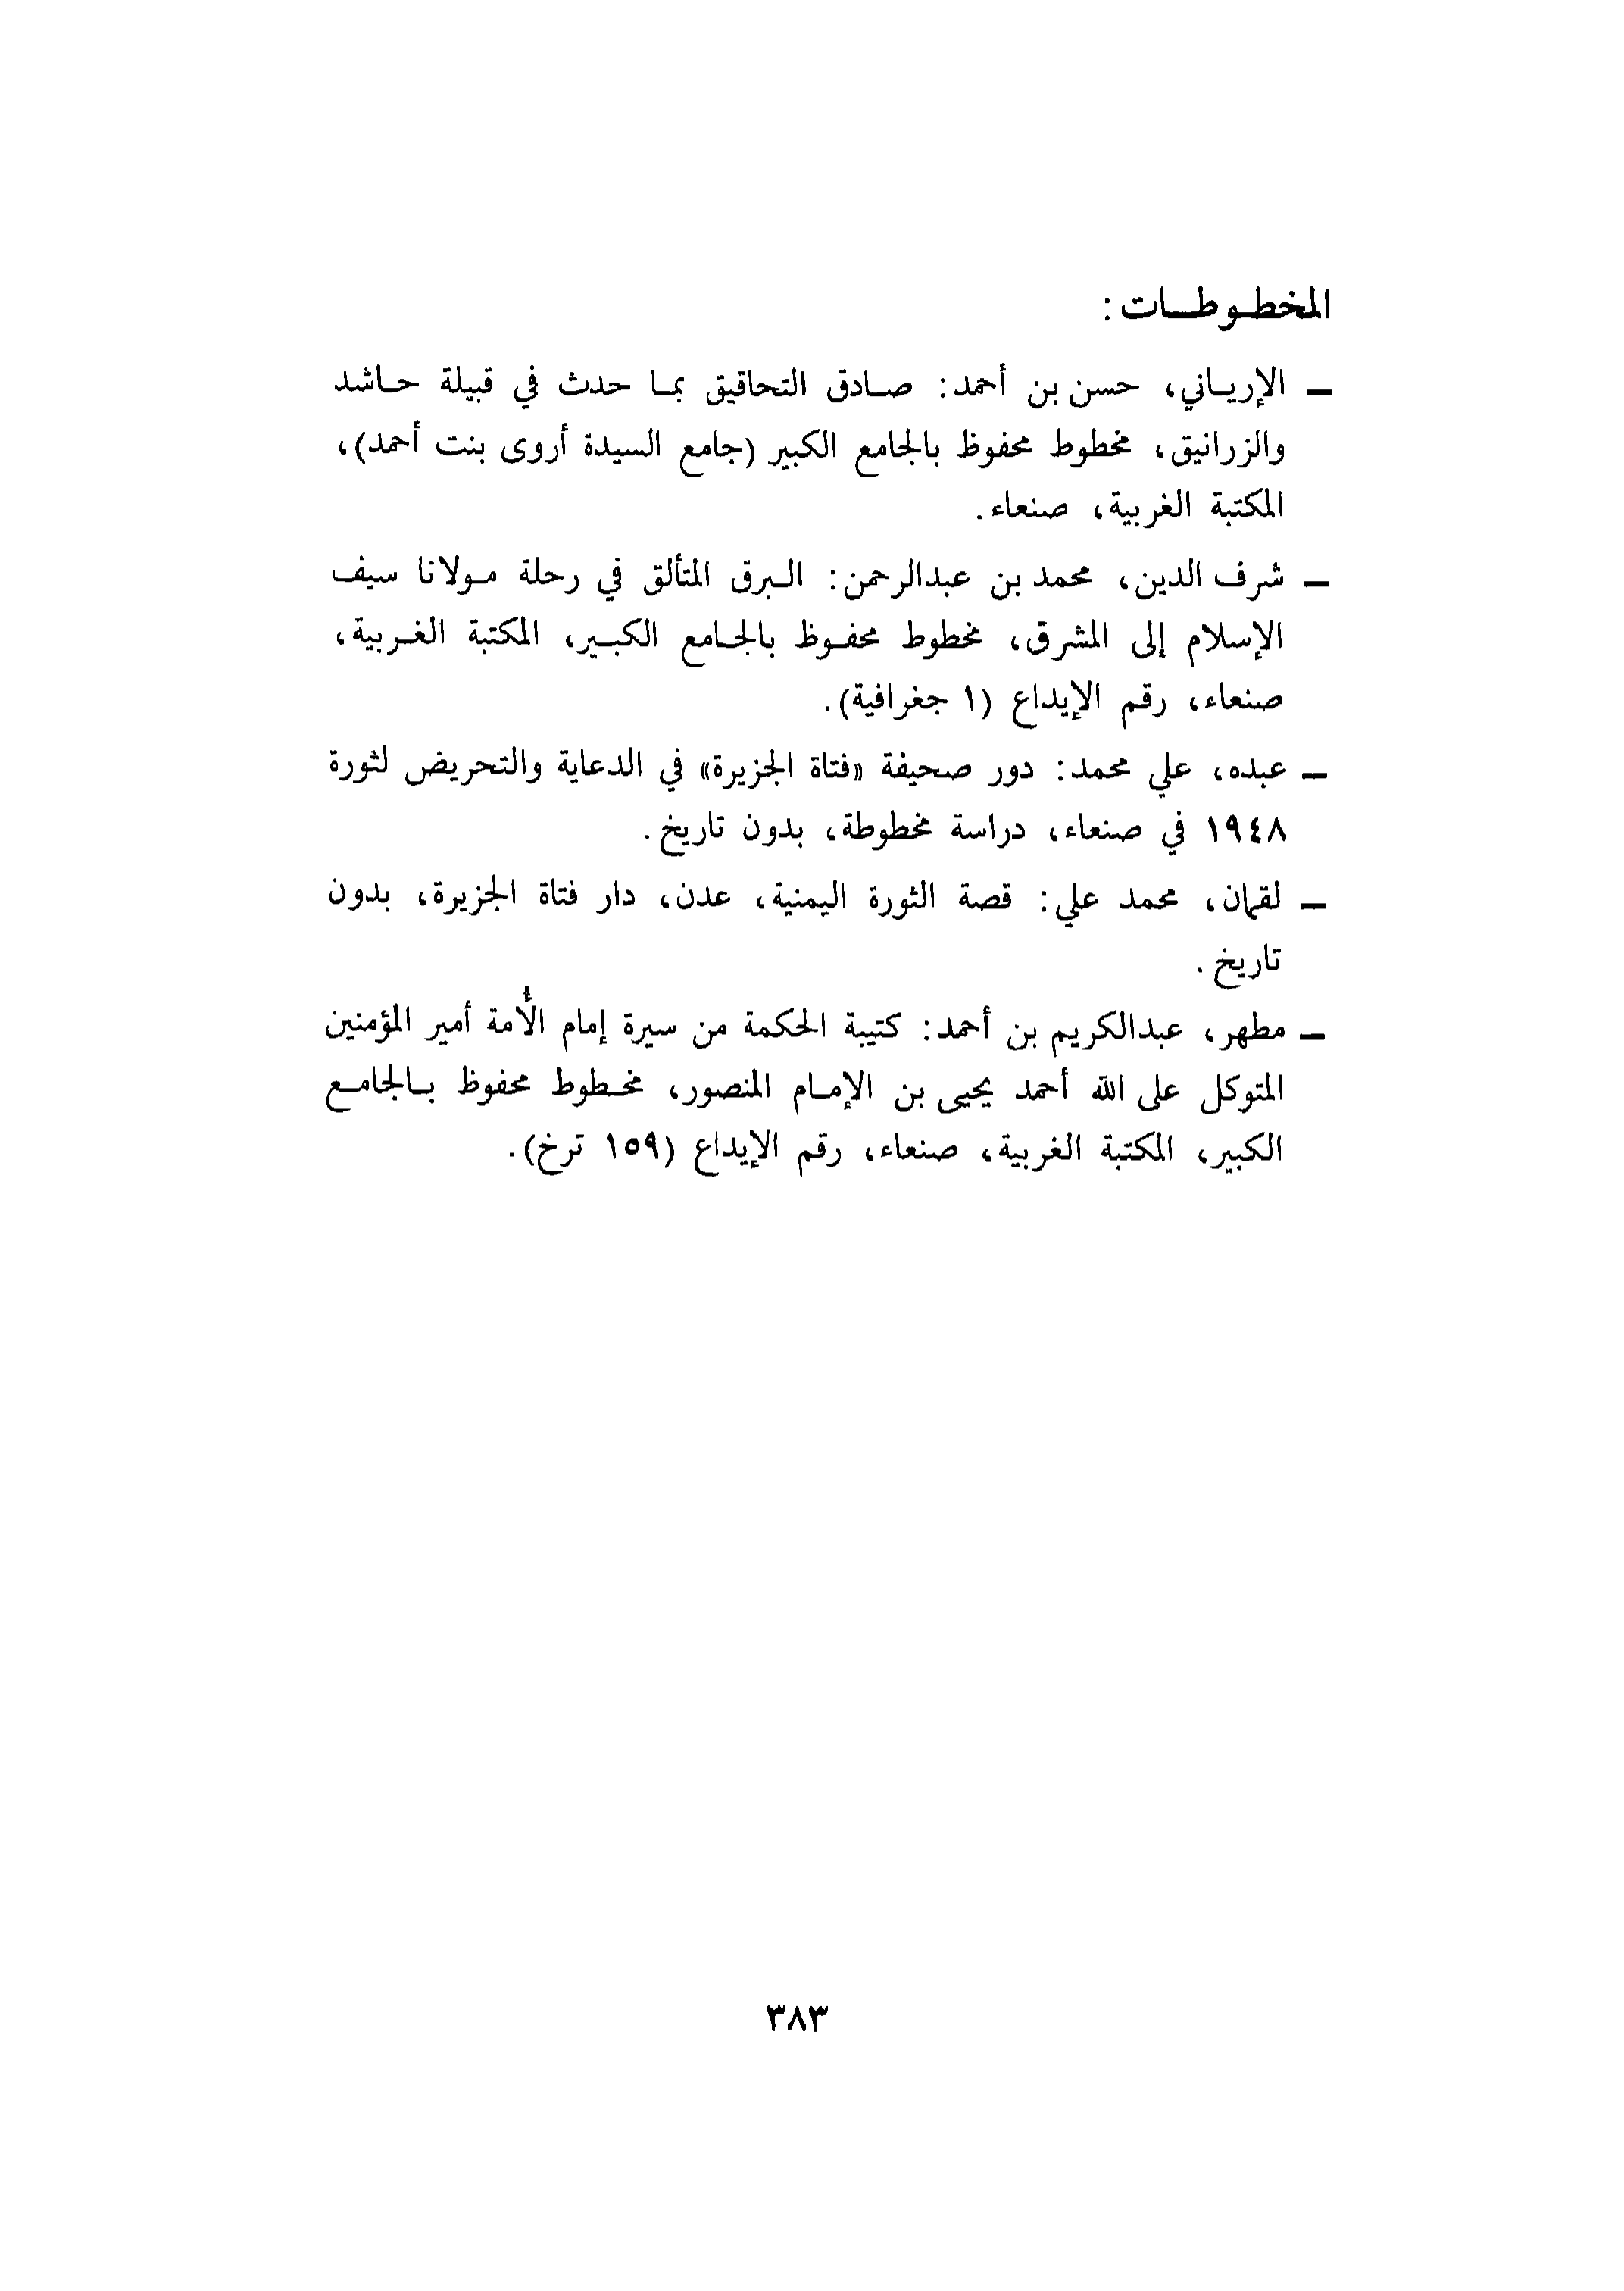 المخطوطات:
ـ الإرياني، حسن بن أحمد: صادق التحاقيق بما حدث في قبيلة حاشد
والزرانيق، مخطوط محفوظ بالجامع الكبير (جامع السيدة أروى بنت أحمد)،
المكتبة الغربية، صنعاء.
ـ شرف الدين، محمد بن عبدالرحمن: البرق المتألق في رحلة مولانا سيف
الإسلام إلى المشرق، مخطوط محفوظ بالجامع الكبير، المكتبة الغربية،
صنعاء، رقم الإيداع (١ جغرافية).
ـ عبده، علي محمد: دور صحيفة «فتاة الجزيرة» في الدعاية والتحريض لثورة
١٩٤٨ في صنعاء، دراسة مخطوطة، بدون تاريخ.
ـ لقمان، محمد علي: قصة الثورة اليمنية، عدن، دار فتاة الجزيرة، بدون
تاريخ.
ـ مطهر، عبدالكريم بن أحمد: كتيبة الحكمة من سيرة إمام الأُمة أمير المؤمنين
المتوكل على الله أحمد يحيى بن الإمام المنصور، مخطوط محفوظ بالجامع
الكبير، المكتبة الغربية، صنعاء، رقم الإيداع (١٥٩ ترخ).
٣٨٣